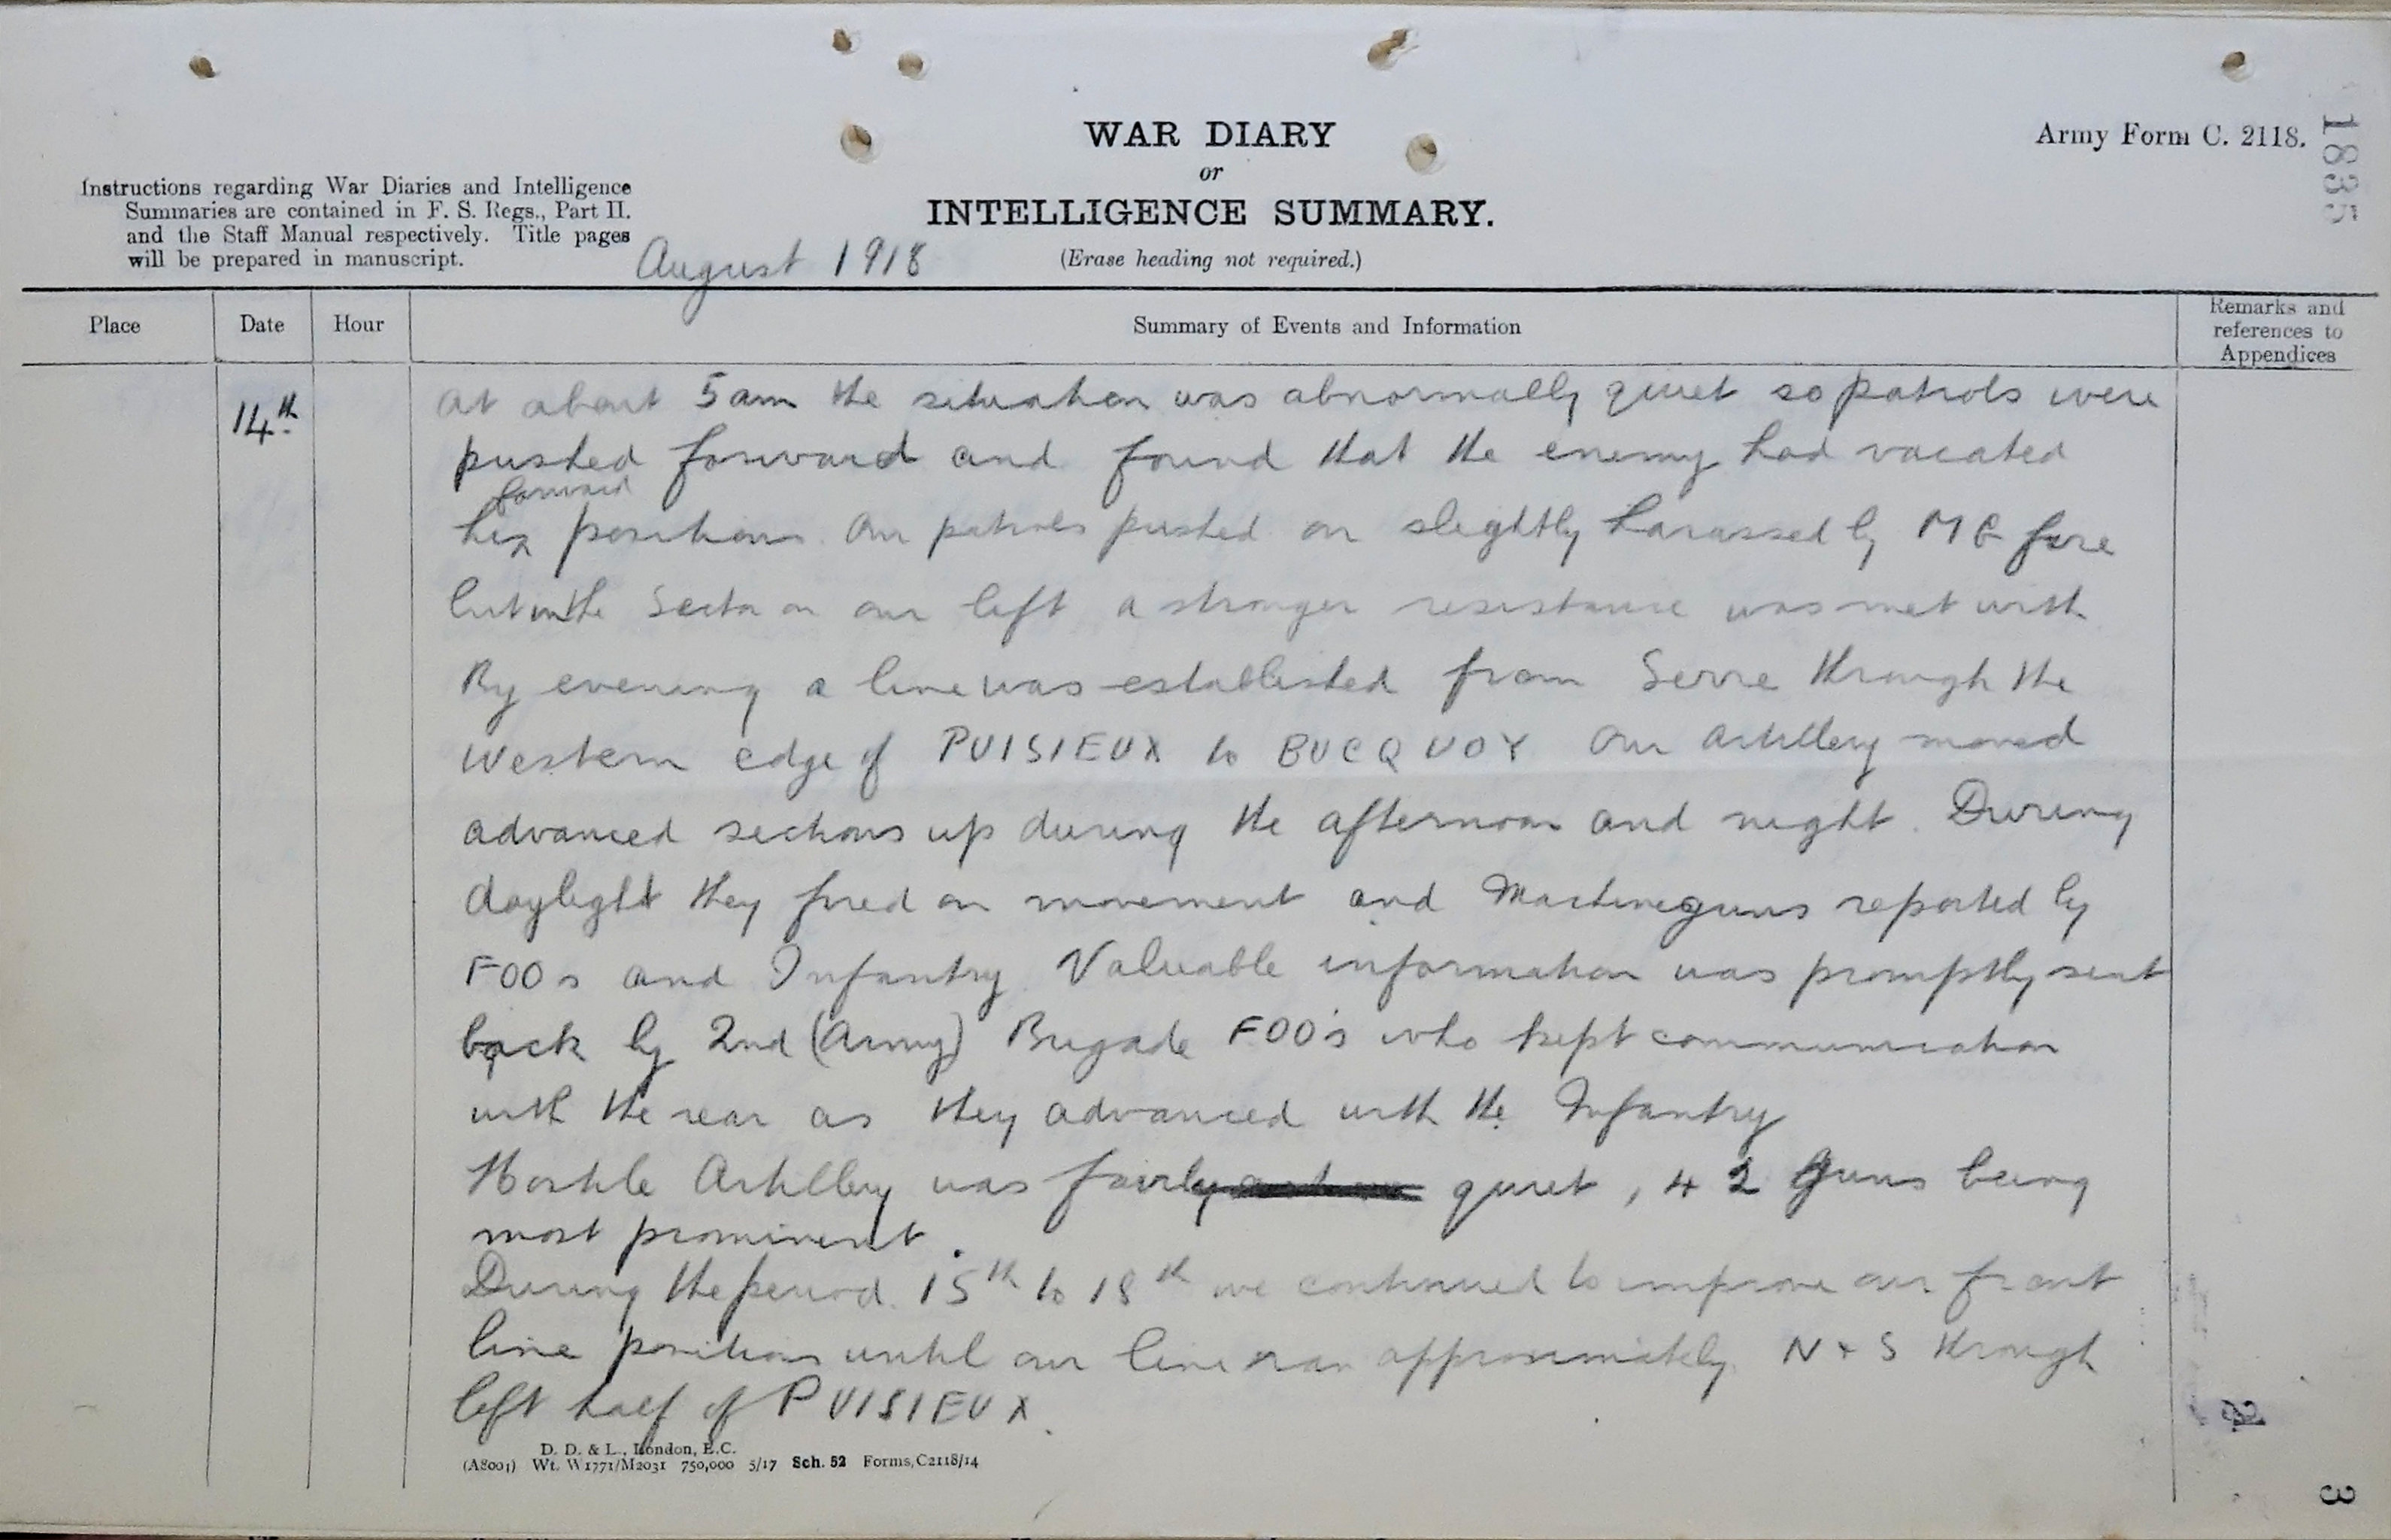 WAR DIARY
or
INTELLIGENCE SUMMARY.
(Erase heading not required.)
Army Form C. 2118.
1835
Instructions regarding War Diaries and Intelligence
Summaries are contained in F. S. Regs., Part II.
and the Staff Manual respectively. Title pages
will be prepared in manuscript.
August 1918
Place Date Hour Summary of Events and Information Remarks and references to Appendices
14th at about 5am the situation was abnormally quiet so patrols were
pushed forward and found that the enemy had vacated
forward
his positions. Our patrols pushed on slightly harassed by MG fire
but in the Sector on our left a stronger resistance was met with
By evening a line was established from Serre through the
Western edge of PUISIEUX to BUCQUOY Our Artillery moved
advanced sections up during the afternoon and night. During
daylight they fired on movement and Machineguns reported by
FOOs and Infantry. Valuable information was promptly sent
back by 2nd (Army) Brigade FOO's who kept communication
with the rear as they advanced with the Infantry
Hostile Artillery was fairly quiet, 4 2 Guns being
most prominent.
During the period 15th to 18th we continued to improve our front
line positions until our line ran approximately N + S through
left half of PUISIEUX.
D. D. & L., London, E.C.
(A8001) Wt. W1771/M2031 750,000 5/17 Sch. 52 Forms,C2118/14
3